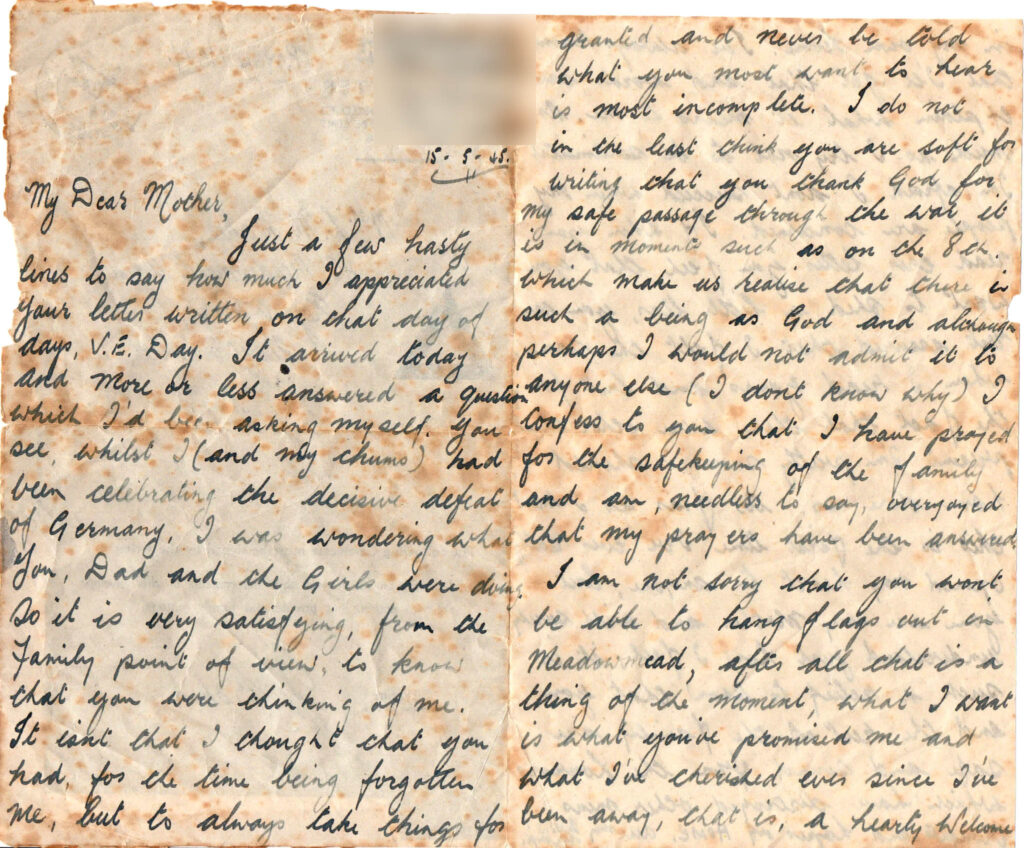 15-5-45.
My Dear Mother,
Just a few hasty
lines to say how much I appreciated
your letter written on that day of
days, V.E. Day. It arrived today
and more or less answered a question
which I'd been asking myself. You
see, whilst I (and my chums) had
been celebrating the decisive defeat
of Germany, I was wondering what
You, Dad and the Girls were doing
So it is very satisfying, from the
Family point of view, to know
that you were thinking of me.
It isnt that I thought that you
had, for the time being forgotten
me, but to always take things for
granted and never be told
what you most want to hear
is most incomplete. I do not
in the least think you are soft for
writing that you thank God for
my safe passage through the war, it
is in moments such as on the 8th.
which make us realise that there is
such a being as God and although
perhaps I would not admit it to
anyone else (I dont know why) I
confess to you that I have prayed
for the safekeeping of the family
and am, needless to say, overjoyed
that my prayers have been answered.
I am not sorry that you wont
be able to hang flags out in
Meadowmead, after all that is a
thing of the moment, what I want
is what you've promised me and
what I've cherished ever since I've
been away, that is, a hearty Welcome